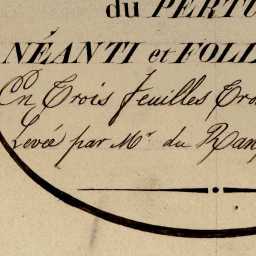 du PERTU
NÉANTI et FOLL
En Trois feuilles Tro
Levée par Mr du Ran